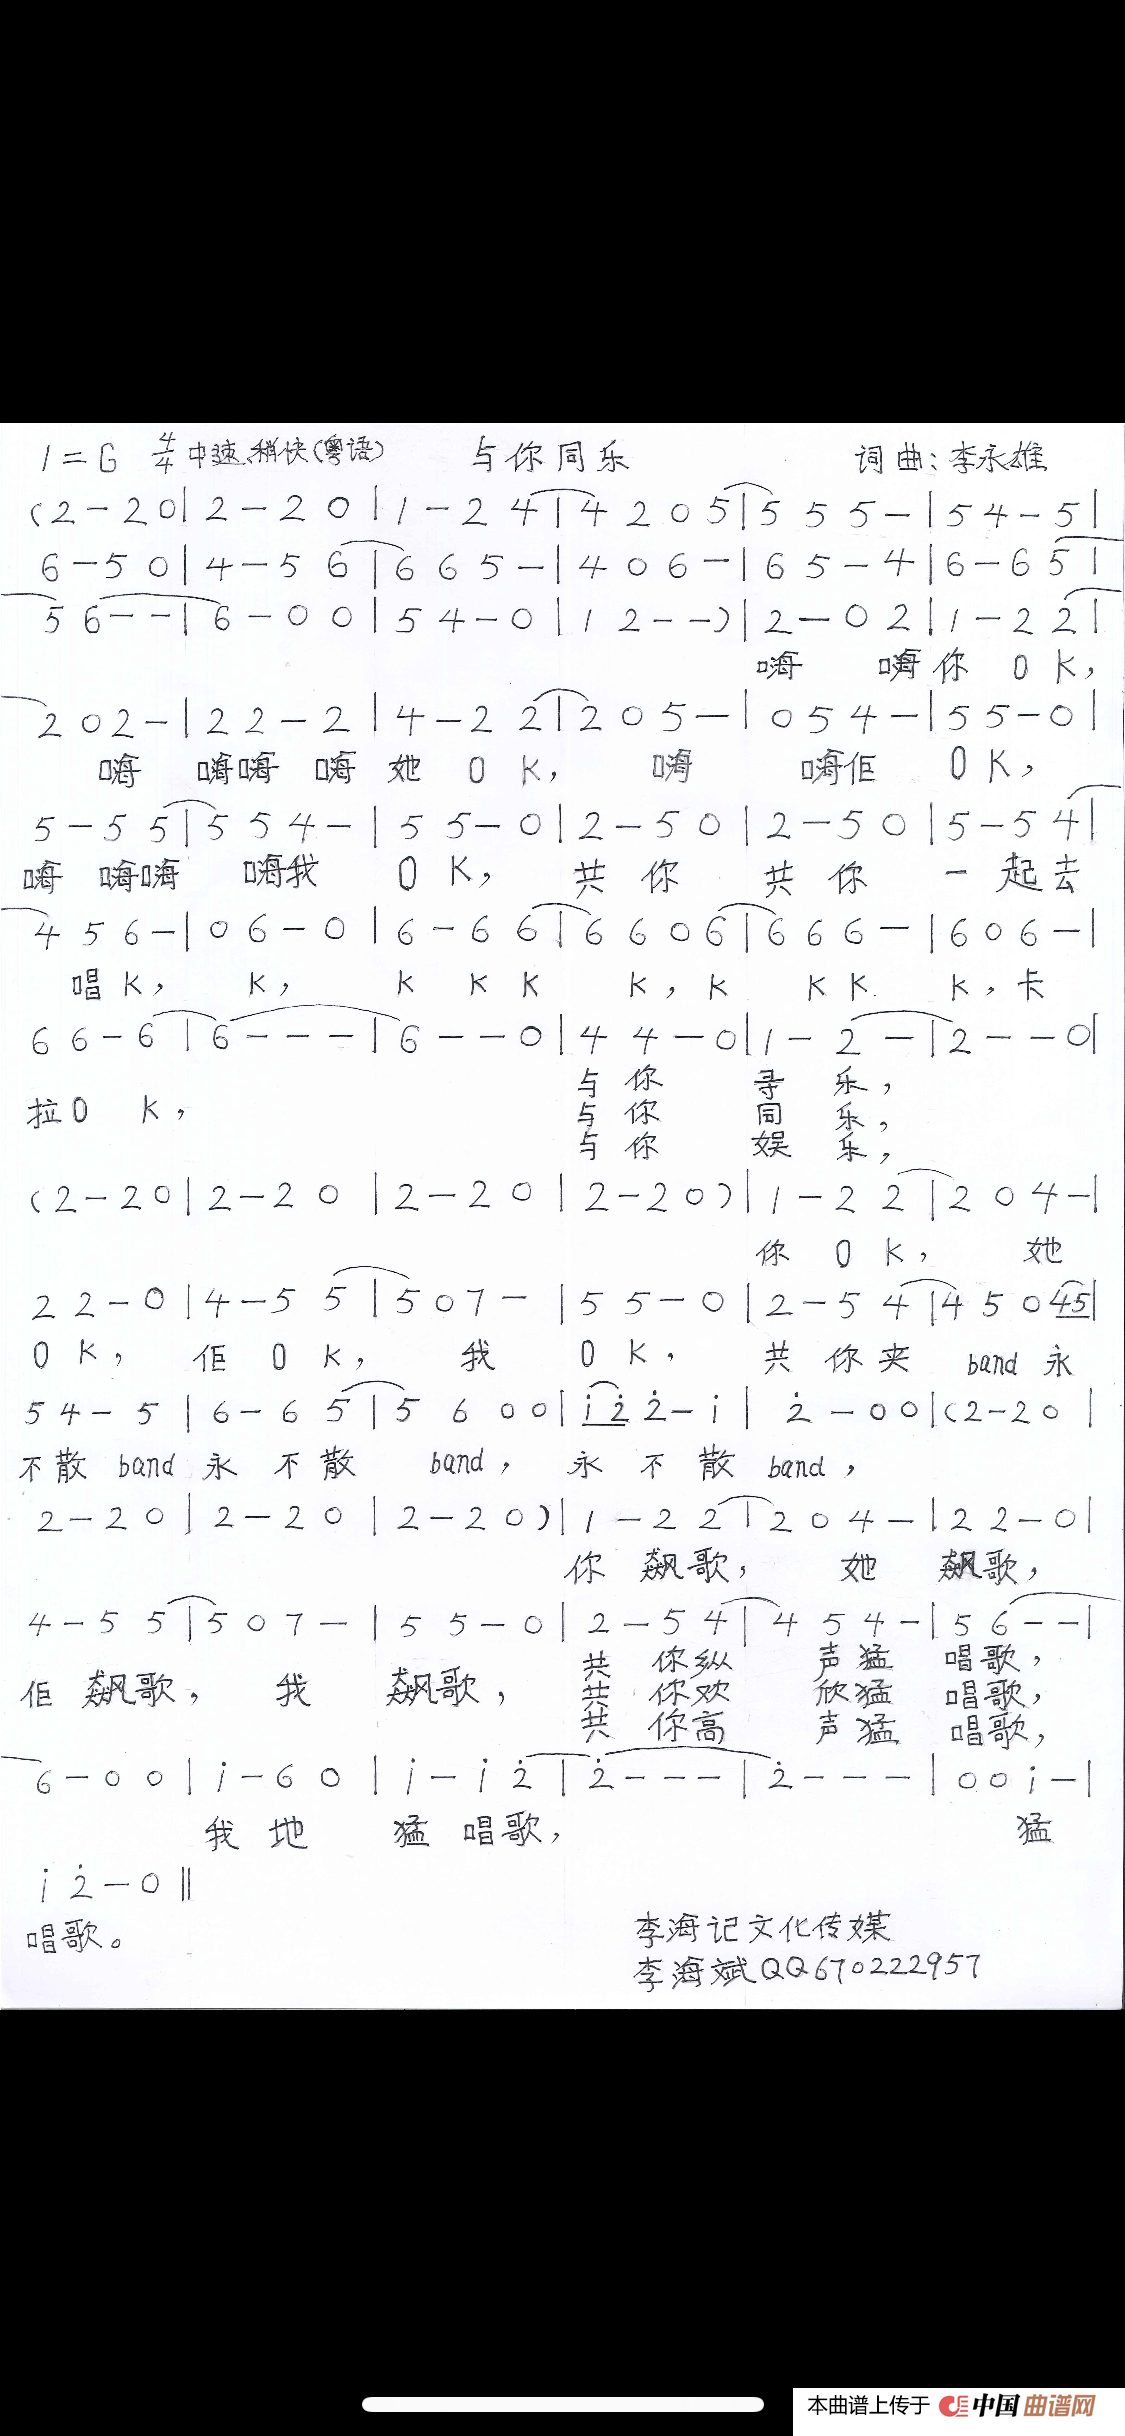 1=G 4/4 中速、稍快(粤语) 与你同乐 词曲:李永雄
(2-20|2-20|1-24|4205|555-|54-5|
6-50|4-56|665-|406-|65-4|6-65|
56--|6-00|54-0|12--)|2-02|1-22|
嗨 嗨你 O K,
202-|22-2|4-22|205-|054-|55-0|
嗨 嗨嗨 嗨 她 O K, 嗨 嗨佢 O K,
5-55|554-|55-0|2-50|2-50|5-54|
嗨 嗨嗨 嗨我 O K, 共 你 共 你 一 起去
456-|06-0|6-66|6606|666-|606-|
唱 K, K, K K K K, K K K K, 卡
66-6|6---|6--0|44-0|1-2-|2--0|
与 你 寻 乐,
拉O K, 与 你 同 乐,
与 你 娱 乐,
(2-20|2-20|2-20|2-20)|1-22|204-|
你 O K, 她
22-0|4-55|507-|55-0|2-54|45045|
O K, 佢 O K, 我 O K, 共 你 夹 band 永
54-5|6-65|5600|i̇2̇2̇-i̇|2̇-00|(2-20|
不 散 band 永 不 散 band, 永 不 散 band,
2-20|2-20|2-20)|1-22|204-|22-0|
你 飙歌, 她 飙歌,
4-55|507-|55-0|2-54|454-|56--|
共 你纵 声猛 唱歌,
佢 飙歌, 我 飙歌, 共 你欢 欣猛 唱歌,
共 你高 声猛 唱歌,
6-00|i̇-60|i̇-i̇2̇|2̇---|2̇---|00i̇-|
我 地 猛 唱歌, 猛
i̇2̇-0‖
唱歌。
李海记文化传媒
李海斌QQ670222957
本曲谱上传于 中国曲谱网